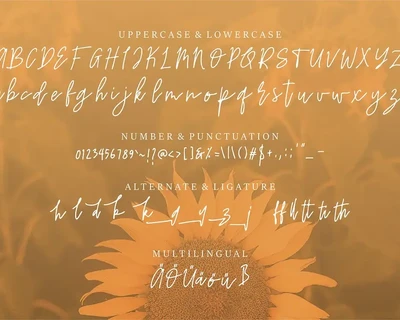 UPPERCASE & LOWERCASE
ABCDEFGHIJKLMNOPQRSTUVWXYZ
abcdefghijklmnopqrstuvwxyz
NUMBER & PUNCTUATION
0123456789'~!?@<>[]&%=\|\()#$+.,:;'"_-
ALTERNATE & LIGATURE
h l d k k_ g_ y_ z_ j ff ll tt ti th
MULTILINGUAL
ÄÖÜäöüß